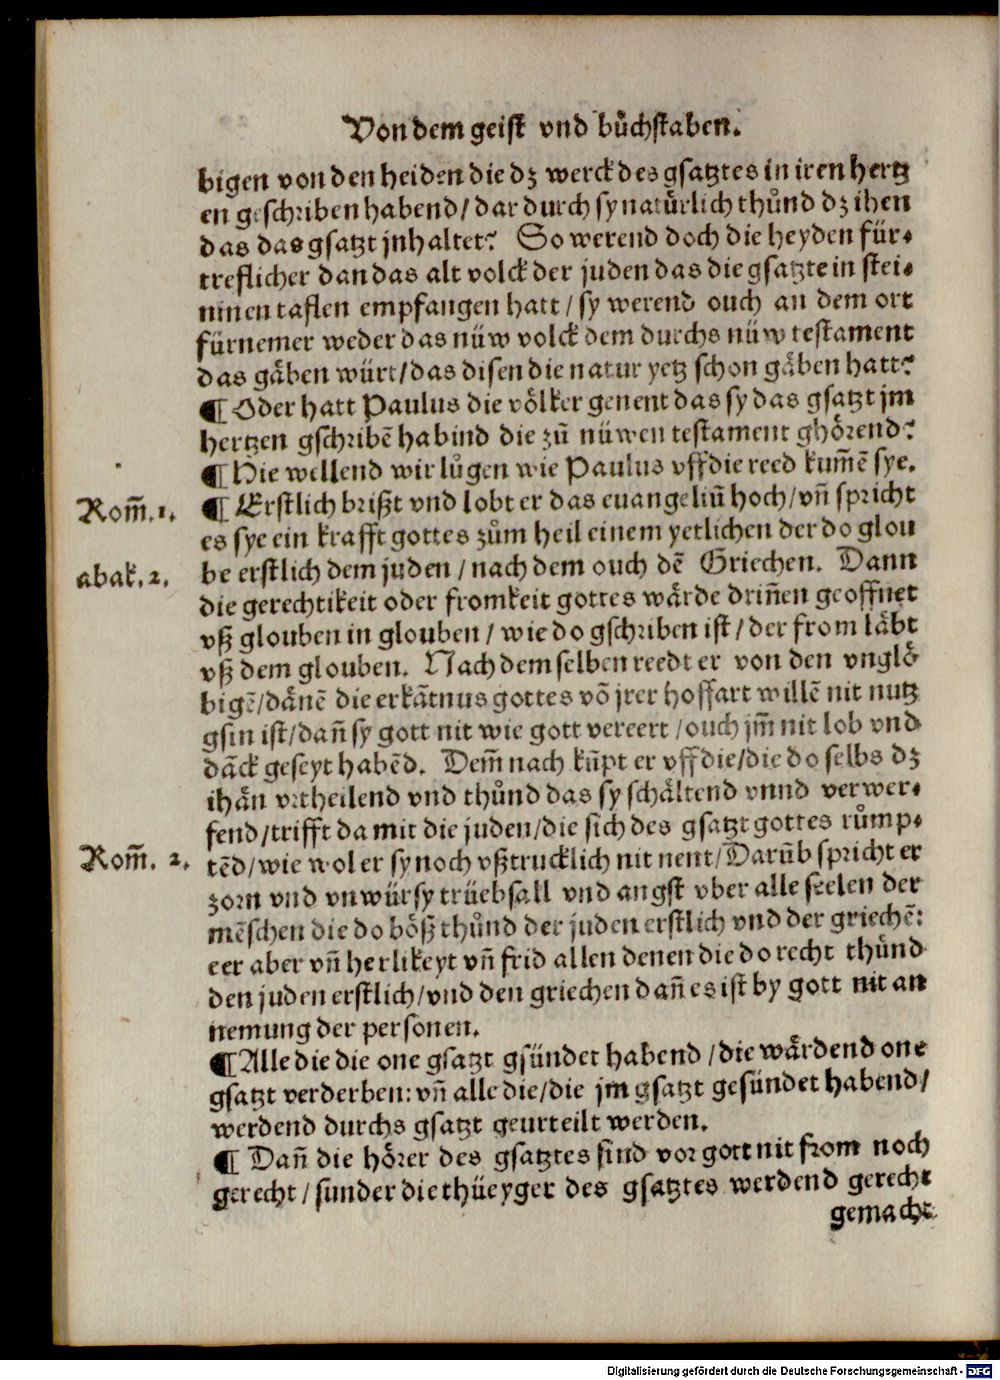 Von dem geist vnd bůchstaben.
bigen von den heiden die dz werck des gsatztes in iren hertz
en geschriben habend/ dar durch sy natürlich thůnd dz ihen
das das gsatzt jnhaltet? So werend doch die heyden für⸗
treflicher dan das alt volck der juden das die gsatzte in stei⸗
ninen taflen empfangen hatt/ sy werend ouch an dem ort
fürnemer weder das nüw volck dem durchs nüw testament
das gäben würt/ das disen die natur yetz schon gäben hatt?
¶ Oder hatt Paulus die völker genent das sy das gsatzt jm
hertzen gschribē habind die zů nüwen testament ghörend?
¶ Hie wellend wir lůgen wie Paulus vff die reed kum̄ē sye.
Rom̄. 1. ¶ Erstlich brißt vnd lobt er das euangeliū hoch/ vn̄ spricht
es sye ein krafft gottes zům heil einem yetlichen der do glou
abak. 2. be erstlich dem juden/ nach dem ouch dē Griechen. Dann
die gerechtikeit oder fromkeit gottes wärde drin̄en geoffnet
vß glouben in glouben/ wie do gschriben ist/ der from läbt
vß dem glouben. Nach dem selben reedt er von den vnglö
bigē/ dänē die erkātnus gottes vō jrer hoffart willē nit nutz
gsin ist/ dan̄ sy gott nit wie gott vereert/ ouch jm̄ nit lob vnd
dāck geseyt habēd. Dem̄ nach kūpt er vff die/ die do selbs dz
ihän vrtheilend vnd thůnd das sy schältend vnnd verwer⸗
fend/ trifft da mit die juden/ die sich des gsatzt gottes růmp⸗
Rom̄. 2. tēd/ wie wol er sy noch vßtrucklich nit nent/ Darūb spricht er
zorn vnd vnwürsy trüebsall vnd angst vber alle seelen der
mēschen die do böß thůnd der juden erstlich vnd der griechē:
eer aber vn̄ herlikeyt vn̄ frid allen denen die do recht thůnd
den juden erstlich/ vnd den griechen dan̄ es ist by gott nit an
nemung der personen.
¶ Alle die die one gsatzt gsündet habend/ die wärdend one
gsatzt verderben: vn̄ alle die/ die jm gsatzt gesündet habend/
werdend durchs gsatzt geurteilt werden.
¶ Dan̄ die hörer des gsatztes sind vor gott nit from noch
gerecht/ sunder die thüeyger des gsatztes werdend gerecht
gemacht
Digitalisierung gefördert durch die Deutsche Forschungsgemeinschaft - DFG